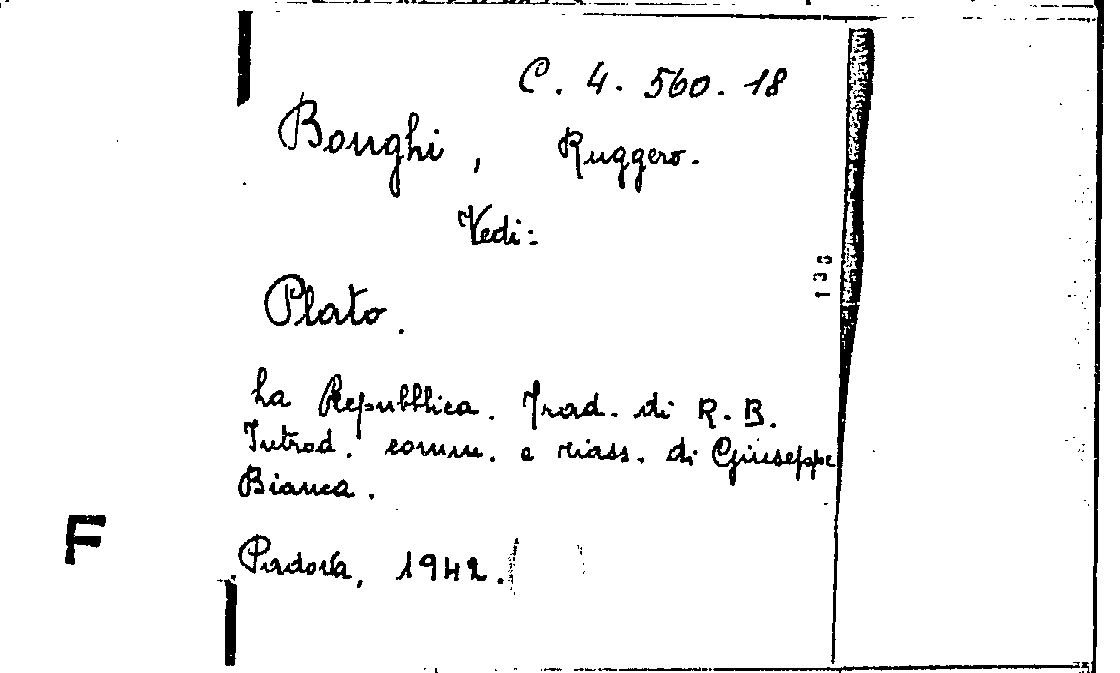 C. 4. 560. 18
Bonghi, Ruggero.
Vedi:
Plato.
133
La Repubblica. Trad. di R. B.
Introd. comm. e riass. di Giuseppe
Bianca.
F
Padova, 1942.